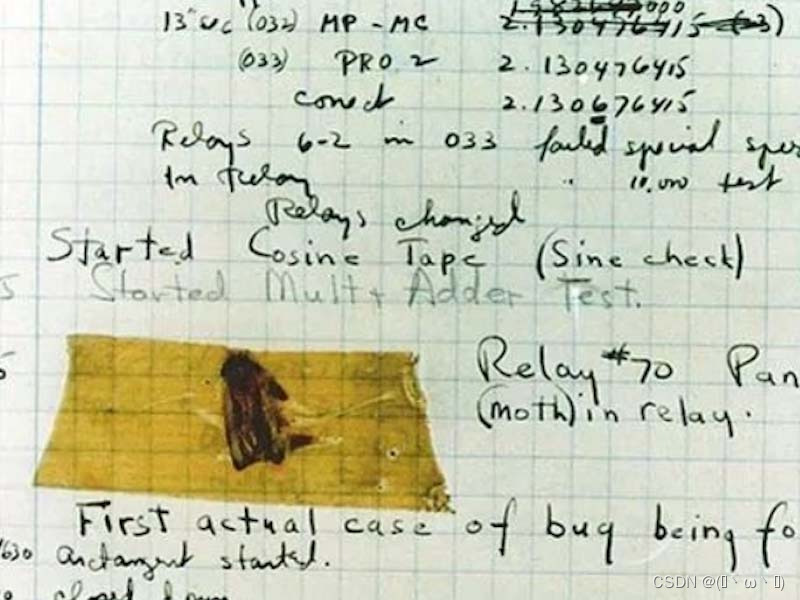 13" uc (032) MP - MC 2.130476415
(033) PRO 2 2.130476415
conect 2.130676415
Relays 6-2 in 033 failed special spee
In Relay " 10.000 test
Relays changed
Started Cosine Tape (Sine check)
Started Mult + Adder Test.
Relay #70 Pan
(moth) in relay.
First actual case of bug being fo
1630 arctangent started.
closed down
CSDN @